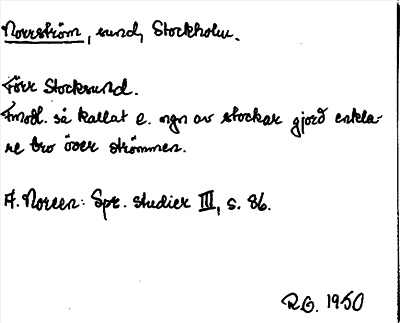 Norrström, sund, Stockholm.
Förr Stocksund.
Förmodl. så kallat e. ngn av stockar gjord enkla-
re bro över strömmen.
A. Noreen: Spr. studier III, s. 86.
R.G. 1950